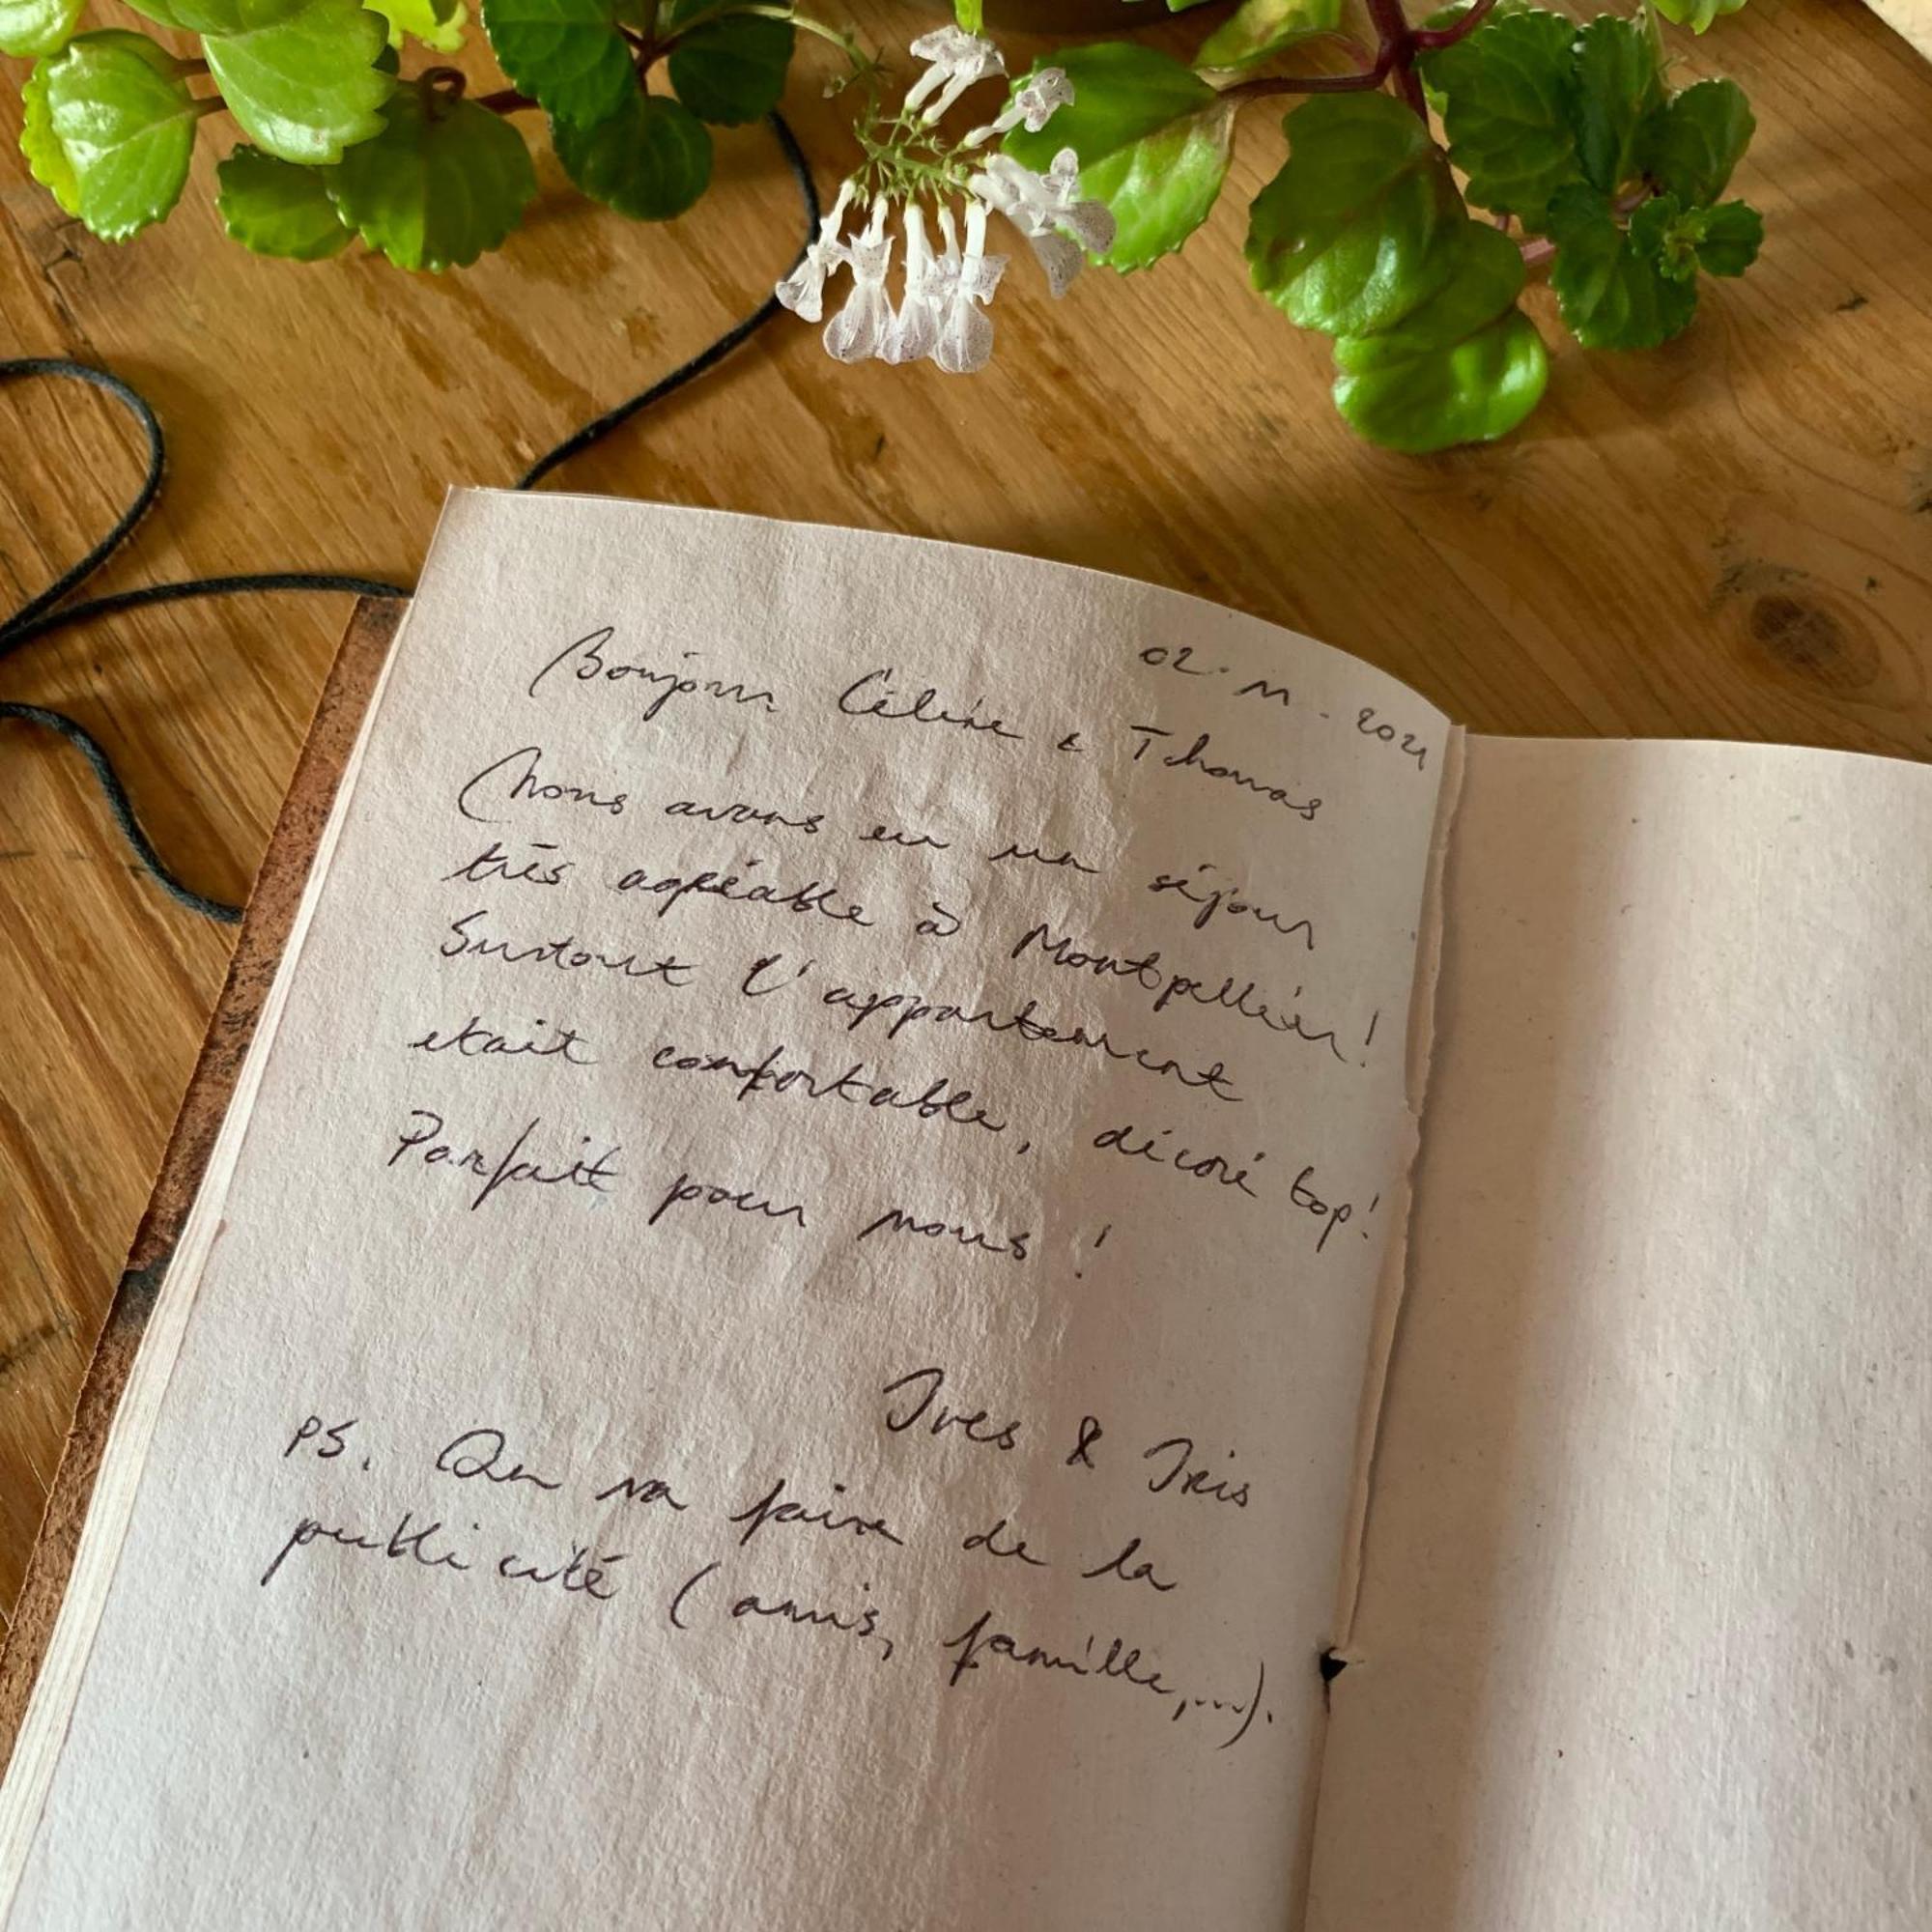 02.11.2021
Bonjour Céline & Thomas
Nous avons eu un séjour
très agréable à Montpellier!
Surtout l'appartement
etait comfortable, décoré top!
Parfait pour nous!
Ives & Iris
PS. On va faire de la
publicité (amis, famille,...).